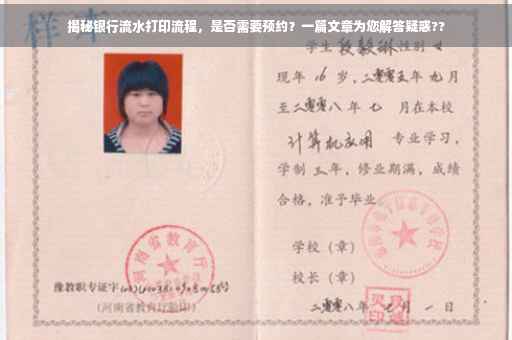 揭秘银行流水打印流程，是否需要预约？一篇文章为您解答疑惑??
样本
学生段毅琳性别女
现年16岁，二零零五年九月
至二零零八年七月在本校
计算机应用 专业学习，
学制三年，修业期满，成绩
合格，准予毕业。
学校（章）
校长（章）
二零零八年七月一日
河南省教育厅
豫教职专证字
（河南省教育厅验印）